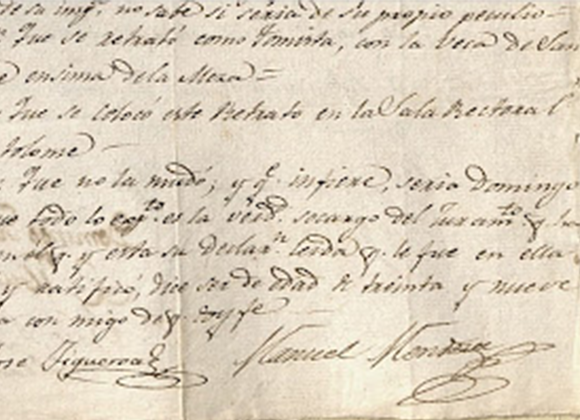 de su imp.ⁿ no sabe si seria de su propio peculio =
Que se retrató como Tomista, con la Veca de San
ensima de la Mesa =
Que se colocó este Retrato en la Sala Rectoral
tolome
Que no la mudó; y q.ᵉ infiere, seria Domingo
que todo lo exp.ᵗᵒ es la verd.ᵈ socargo del Juram.ᵗᵒ q.
en el q. y esta su declar.ⁿ leida q. le fue en ella
y ratificó, que ser de edad de treinta y nueve
con migo de q. doy fe
Jose Figueroa Manuel Mendoza